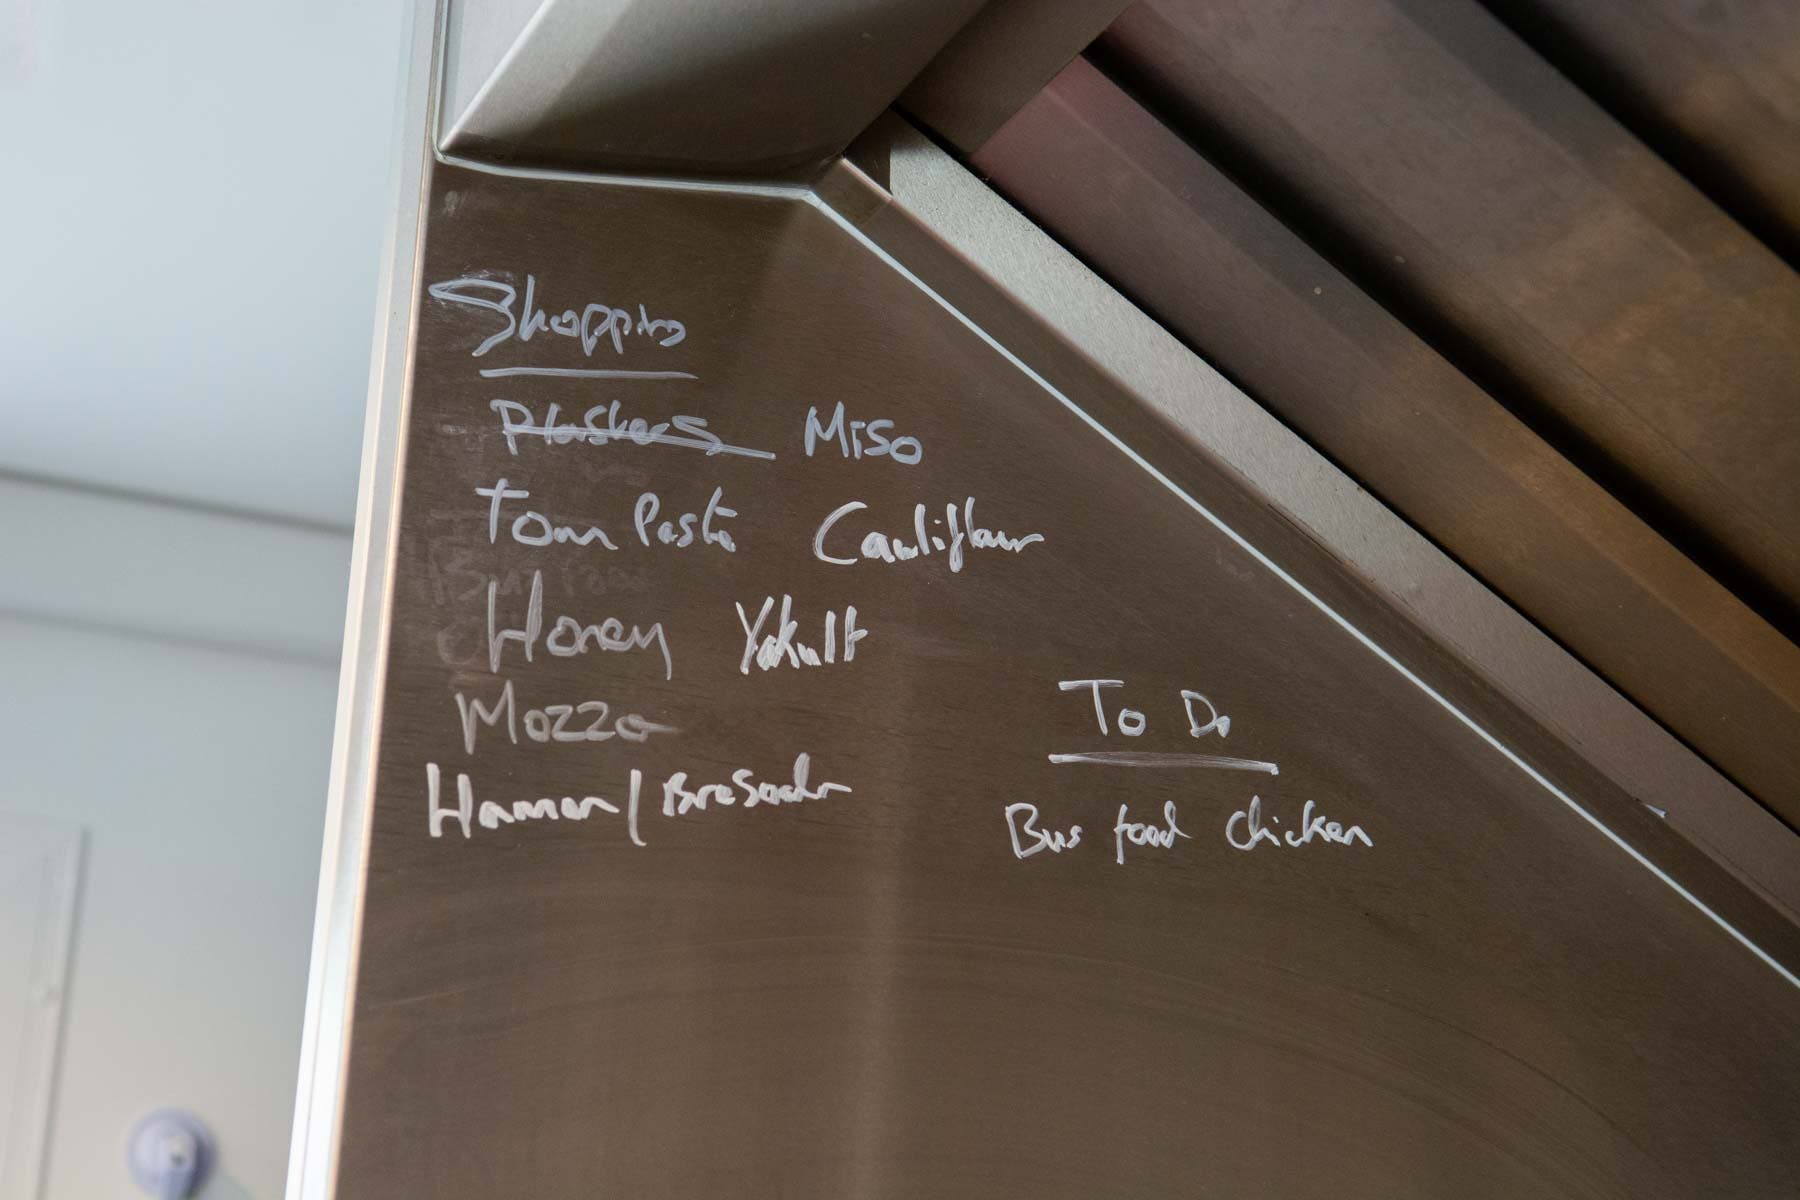 Shopping
Plasters Miso
Tom Paste Cauliflower
Honey Yakult
Mozza
To Do
/ Bresaola
Bus food chicken